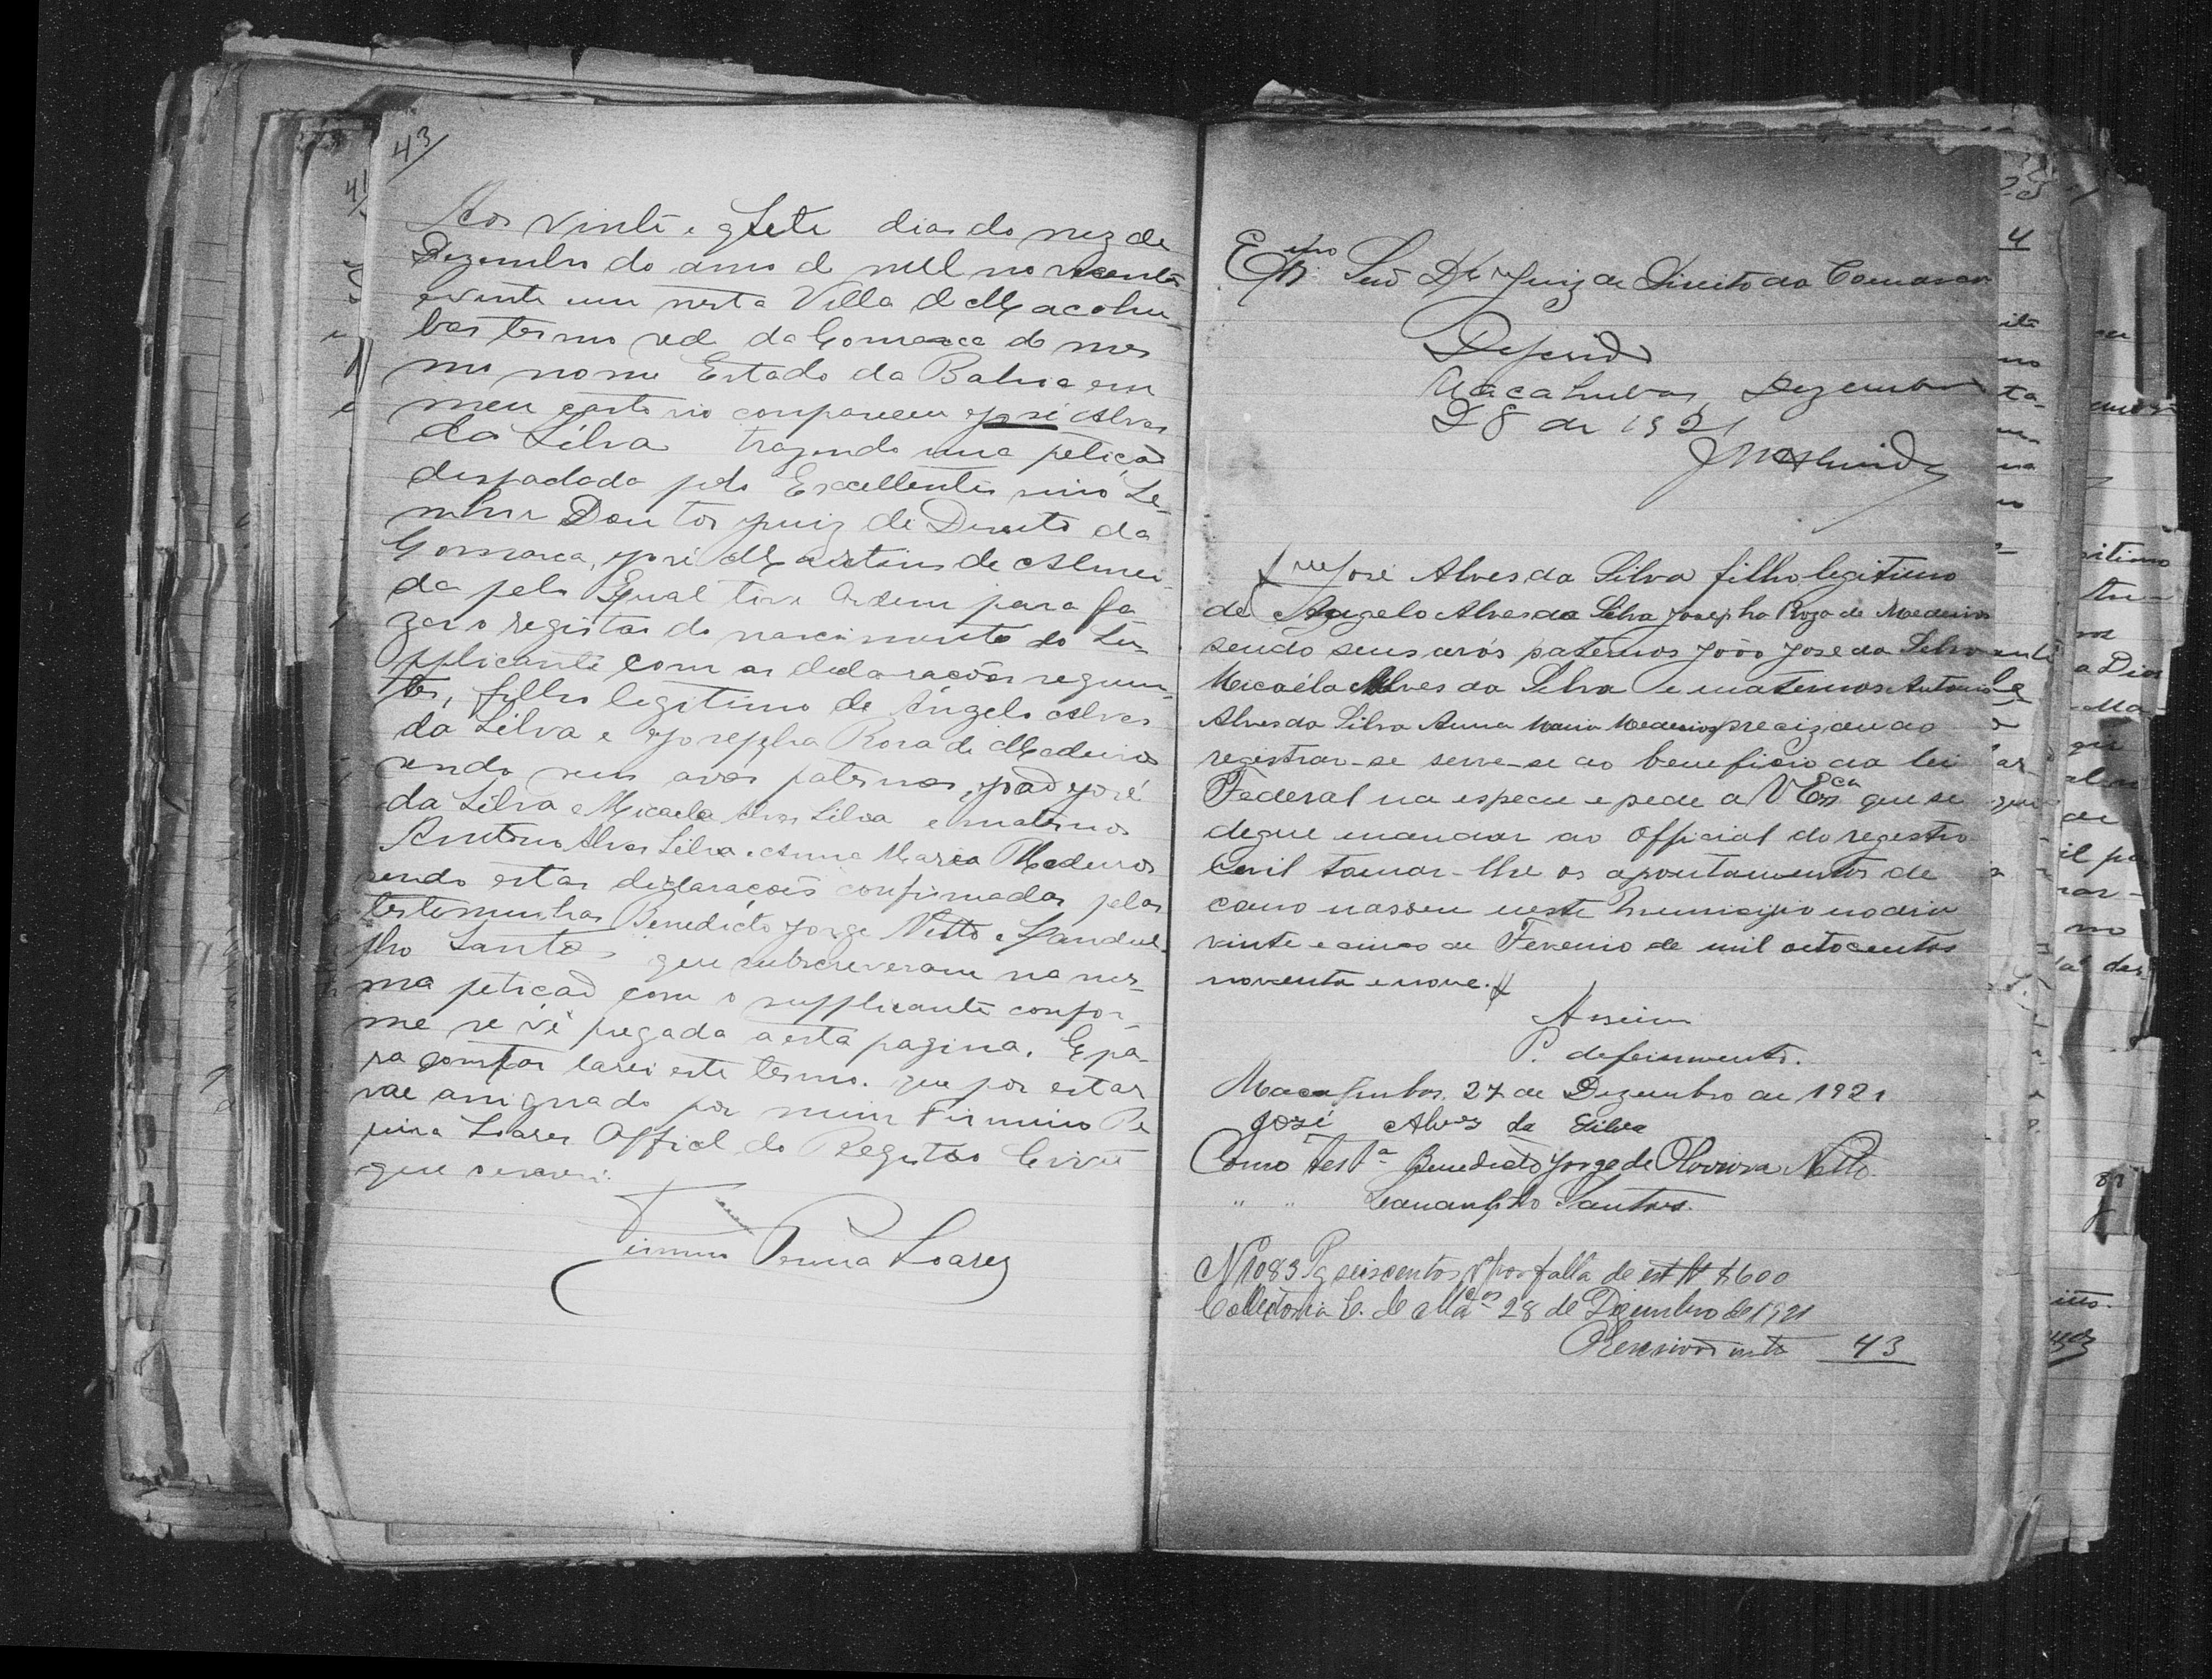 43
Aos vinte e sete dias do mez de
Dezembro do anno de mil novecentos
e vinte um nesta Villa de Macahu-
bas termo séde da Comarca do mes
mo nome Estado da Bahia em
meu cartorio compareceu José Alves
da Silva trazendo uma petição
despachada pelo Excellentissimo Se-
nhor Doutor Juiz de Direito da
Comarca, José Martins de Almei-
da pela qual tive ordem para fa
zer o registro do nascimento do su-
pplicante com as declarações seguin-
tes, filho legitimo de Angelo Alves
da Silva e Josepha Rosa de Medeiros
sendo seus avós paternos, João José
da Silva e Micaela Alves Silva e maternos
Antonio Alves Silva e Anna Maria Medeiros
sendo estas declarações confirmadas pelas
testemunhas Benedicto Jorge Netto e
Santos que subscreveram na mes-
ma petição com o supplicante confor-
me se vê pregada a esta pagina. E pa-
ra constar lavrei este termo. que por estar
vae assignado por mim Firmino Pe
reira Soares Official do Registro Civil
que escrevi.
Firmino Pereira Soares
Exmo Snr Dr Juiz de Direito da Comarca
Deferido
Macahubas, Dezembro
28 de 1921
JMAlmeida
José Alves da Silva filho legitimo
de Angelo Alves da Silva Josepha Roza de Medeiros
sendo seus avós paternos João José da Silva
Micaéla Alves da Silva e maternos Antonio
Alves da Silva Anna Maria Medeiros precizando
registrar-se serve-se do beneficio da lei
Federal na especie e pede a V Exca que se
degne mandar ao Official do registro
Civil tomar-lhe os apontamentos de
como nasceu neste municipio no dia
vinte e cinco de Fevereiro de mil oitocentos
noventa e nove.
Assim
P. deferimento.
Macahubas, 27 de Dezembro de 1921
José Alves da Silva
Como Testa Benedicto Jorge de Oliveira Netto.
" " Santos.
N 1083 Pg seiscentos rs por falta de est \$600
Collectoria E. de Macas 28 de Dezembro de 1921
43